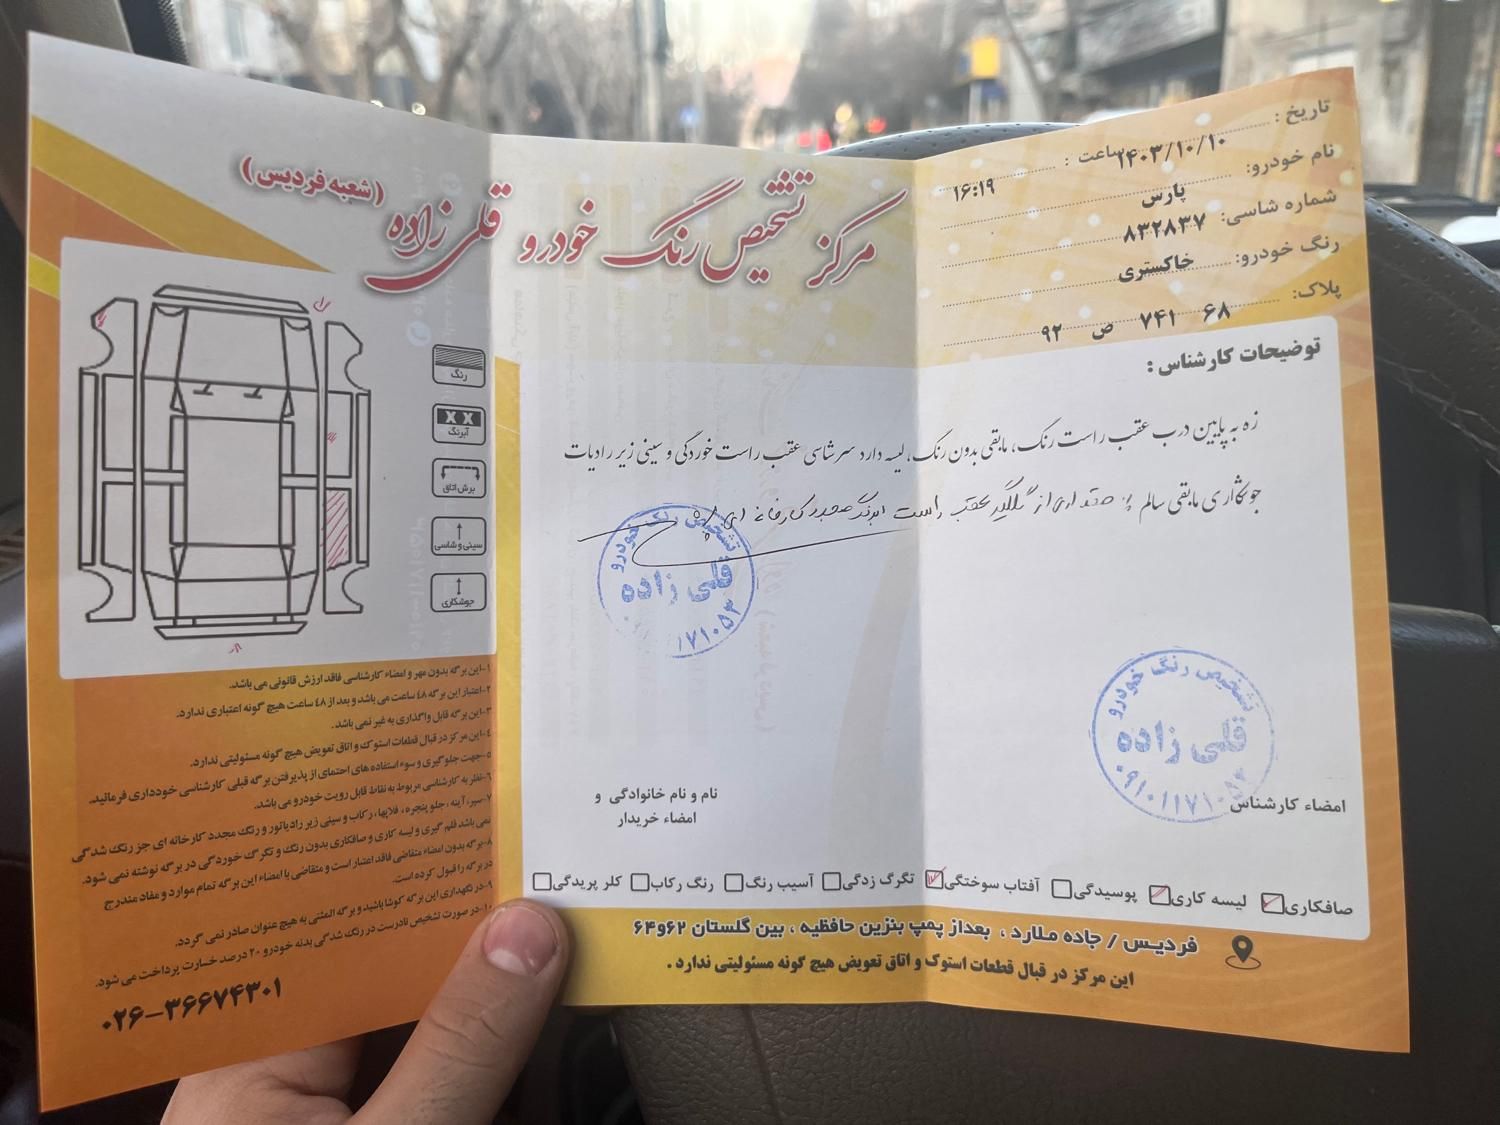 مرکز تشخیص رنگ خودرو قلی زاده
(شعبه فردیس)
تاریخ : ۱۴۰۳/۱۰/۱۰ ساعت : ۱۶:۱۹
نام خودرو: پارس
شماره شاسی: ۸۳۲۸۳۷
رنگ خودرو: خاکستری
پلاک: ۶۸ ۷۴۱ ص ۹۲
توضیحات کارشناس :
زه به پایین درب عقب راست رنگ، مابقی بدون رنگ، لیسه دارد سرشاسی عقب راست خوردگی و سینی زیر رادیات
جوشکاری مابقی سالم مقداری از گلگیر عقب راست آبرنگ مجدد کارخانه ای
تشخیص رنگ خودرو
قلی زاده
۱۷۱۰۵۳
تشخیص رنگ خودرو
قلی زاده
۰۹۱۰۱۱۷۱۰۵۳
امضاء کارشناس
نام و نام خانوادگی و
امضاء خریدار
صافکاری لیسه کاری پوسیدگی آفتاب سوختگی تگرگ زدگی آسیب رنگ رنگ رکاب کلر پریدگی
فردیس / جاده ملارد ، بعداز پمپ بنزین حافظیه ، بین گلستان ۶۲و۶۴
این مرکز در قبال قطعات استوک و اتاق تعویض هیچ گونه مسئولیتی ندارد .
رنگ
X X
آبرنگ
برش اتاق
سینی و شاسی
جوشکاری
۱-این برگه بدون مهر و امضاء کارشناسی فاقد ارزش قانونی می باشد.
۲-اعتبار این برگه ٤٨ ساعت می باشد و بعد از ٤٨ ساعت هیچ گونه اعتباری ندارد.
۳-این برگه قابل واگذاری به غیر نمی باشد.
۴-این مرکز در قبال قطعات استوک و اتاق تعویض هیچ گونه مسئولیتی ندارد.
۵-جهت جلوگیری و سوء استفاده های احتمای از پذیرفتن برگه قبلی کارشناسی خودداری فرمائید.
۶-نظر به کارشناسی مربوط به نقاط قابل رویت خودرو می باشد.
۷-سپر، آینه ، جلو پنجره ، فلاپها، رکاب و سینی زیر رادیاتور و رنگ مجدد کارخانه ای جز رنگ شدگی
نمی باشد قلم گیری و لیسه کاری و صافکاری بدون رنگ و تگرگ خوردگی در برگه نوشته نمی شود.
۸-برگه بدون امضاء متقاضی فاقد اعتبار است و متقاضی با امضاء این برگه تمام موارد و مفاد مندرج
در برگه را قبول کرده است.
۹-در نگهداری این برگه کوشا باشید و برگه المثنی به هیچ عنوان صادر نمی گردد.
۱۰-در صورت تشخیص نادرست در رنگ شدگی بدنه خودرو ۲۰ درصد خسارت پرداخت می شود.
۰۲۶-۳۶۶۷۴۳۰۱